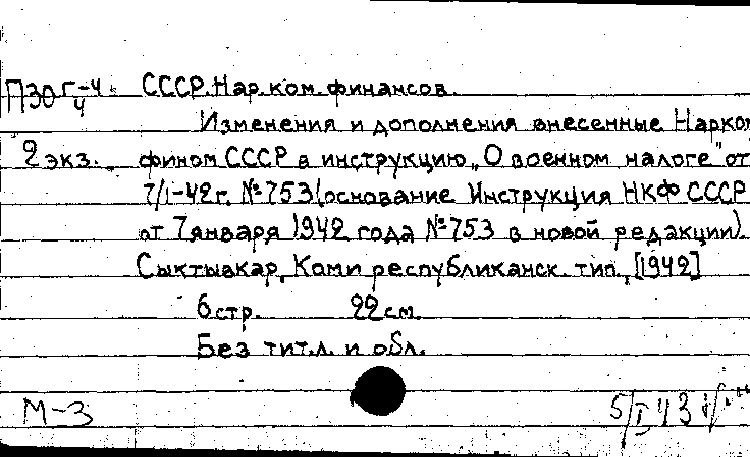 П30 Г-4/4 СССР. Нар. ком. финансов.
Изменения и дополнения внесенные Нарком
2 экз. фином СССР в инструкцию „О военном налоге" от
7/I-42 г. №753 (основание Инструкция НКФ СССР
от 7 января 1942 года №753 в новой редакции).
Сыктывкар, Коми республиканск. тип., [1942]
6 стр. 22 см.
Без тит. л. и обл.
М-3